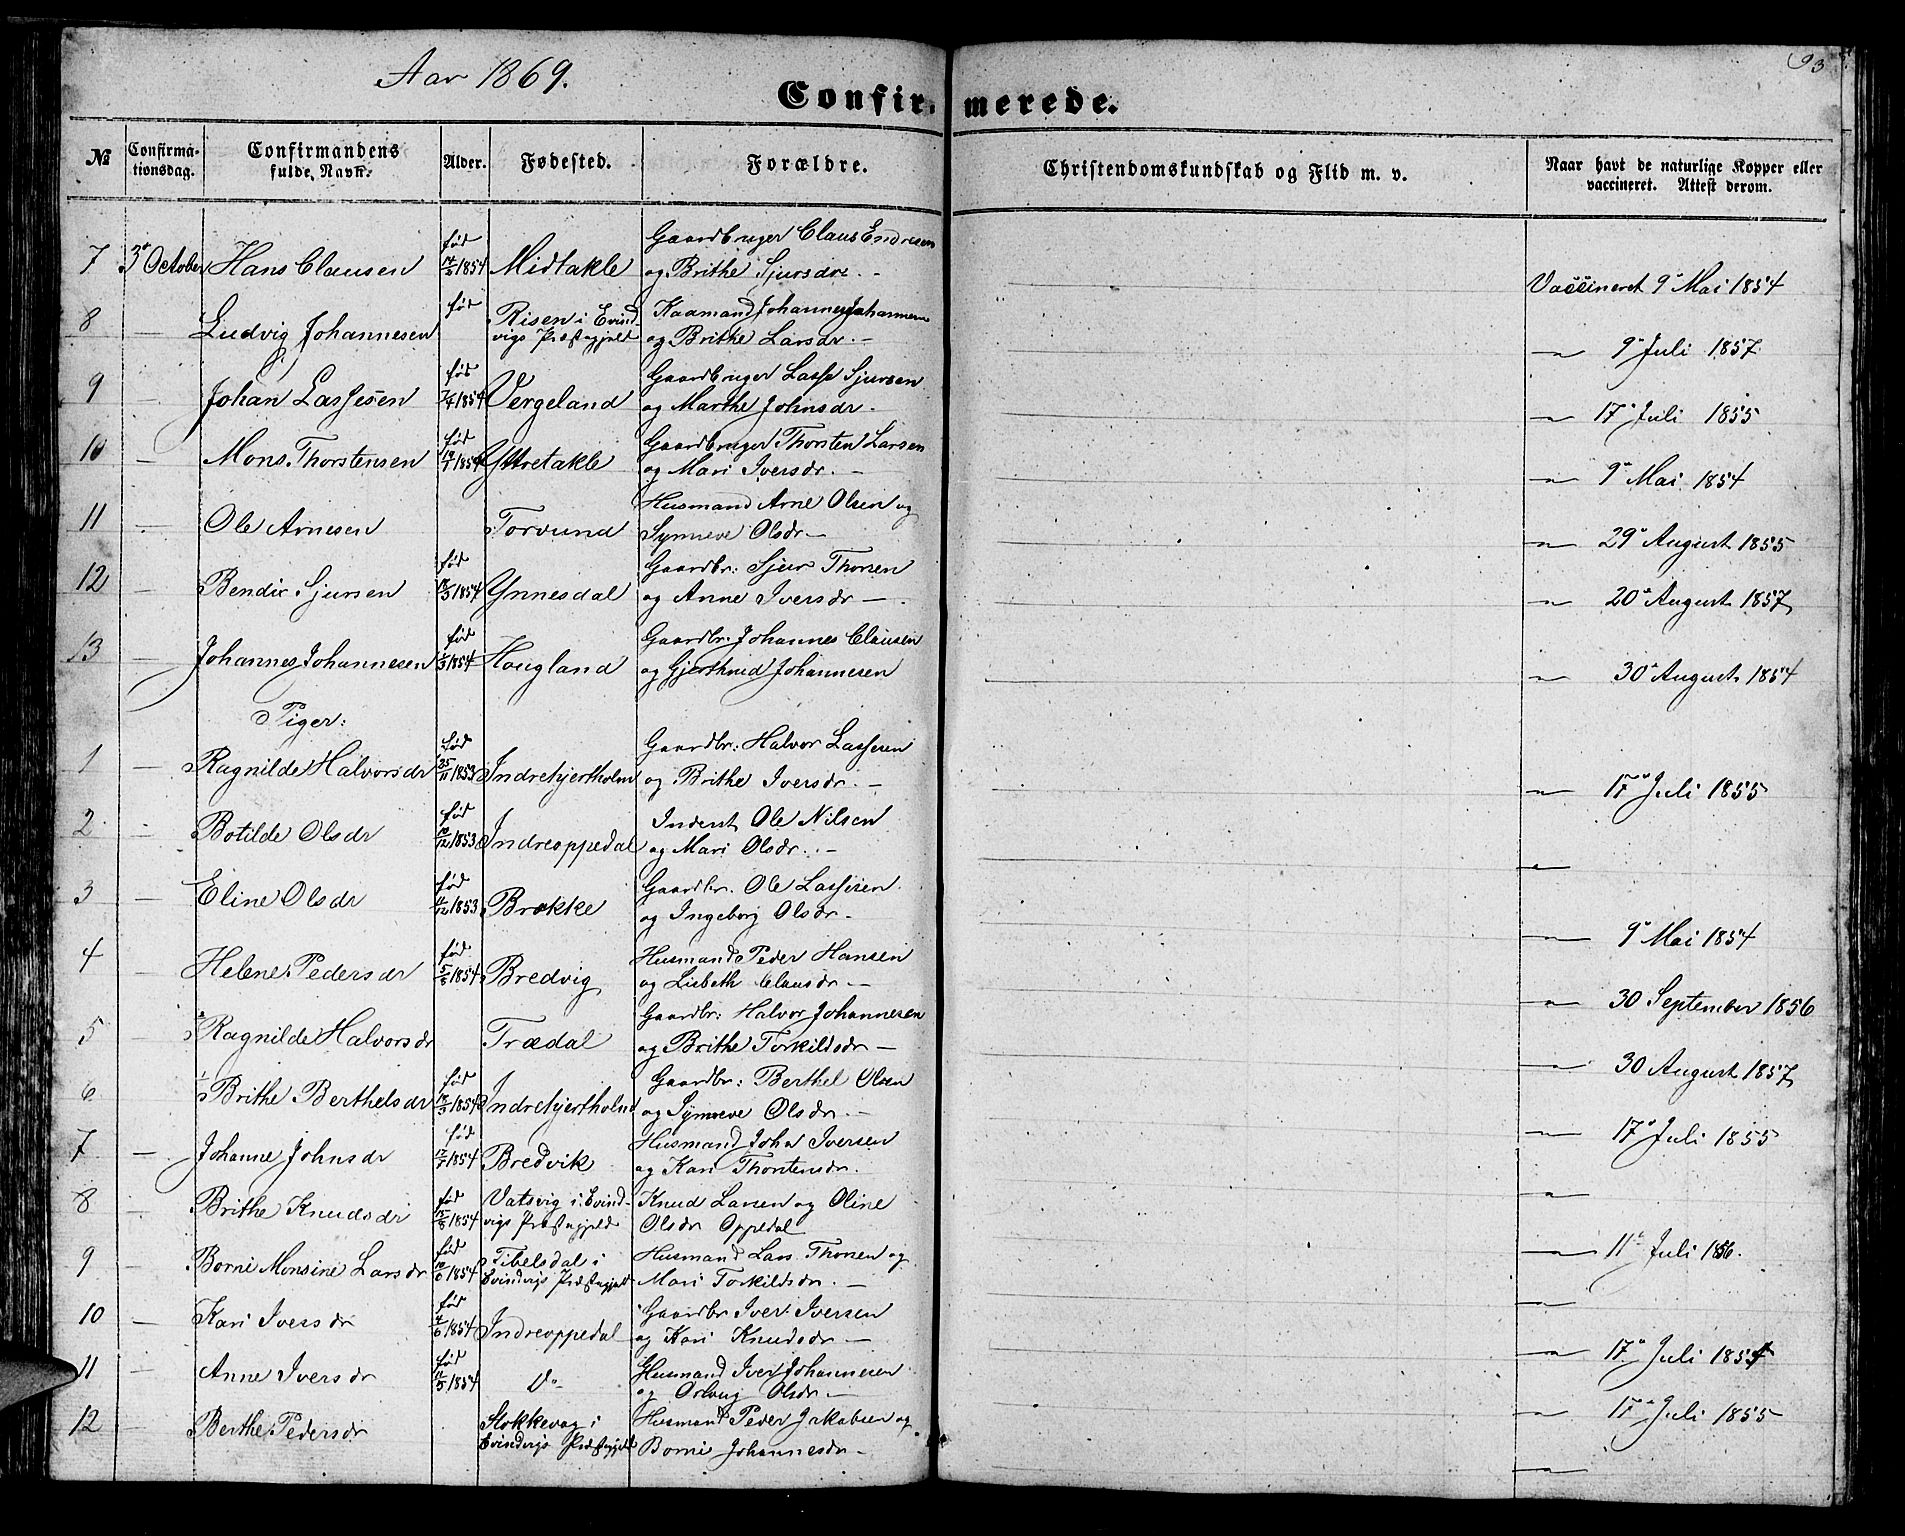 Aar 1869.
93
Confirmerede.
№
Confirmationsdag.
Confirmandens fulde Navn.
Alder.
Fødested.
Forældre.
Christendomskundskab og Flid m. v.
Naar havt de naturlige Kopper eller vaccineret. Attest derom.
7 3de October Hans Clausen født 1854 Midtakle Gaardbruger Claus Endresen og Brithe Sjursdr. - Vaccineret 9de Mai 1854
8 — Ludvig Johannesen født Risen i Evindvigs Præstegjeld Kaarmand Johannes Johannesen og Brithe Larsdr. - — 9de Juli 1857
9 — Johan Lassesen født 1854 Vergeland Gaardbruger Lasse Sjursen og Marthe Johnsdr. — 17de Juli 1855
10 — Mons Thorstensen født 1854 Yttretakle Gaardbruger Thorsten Larsen og Mari Iversdr. - — 9de Mai 1854
11 — Ole Arnesen Torvund Husmand Arne Olsen og Synneve Olsdr - — 29de August 1855
12 — Bendix Sjursen født 18/3 1854 Ynnesdal Gaardbr: Sjur Thorsen og Anne Iversdr - — 20de August 1857
13 — Johannes Johannesen født 1854 Hougland Gaardbr: Johannes Clausen og Gjerthrud Johannesen — 30de August 1854
Piger:
1 — Ragnilde Halvorsdr født 25/11 1853 Indrehjertholm Gaardbr: Halvor Lassesen og Brithe Iversdr. - — 17de Juli 1855
2 — Botilde Olsdr født 10/12 1853 Indreoppedal Inderst Ole Nilsen og Mari Olsdr. - —
3 — Eline Olsdr født 1853 Brekke Gaardbr. Ole Lassesen og Ingeborg Olsdr - — 9de Mai 1854
4 — Helene Pedersdr født 1854 Bredvig Husmand Peder Hansen og Lisbeth Clausdr - — 30 September 1856
5 Ragnilde Halvorsdr Trædal Gaardbr: Halvor Johannesen og Brithe Torkildsdr - — 30 August 1857
6 Brithe Berthelsdr født 1854 Indrehjertholm Gaardbr: Berthel Olsen og Synneve Olsdr. - — 17de Juli 1855
7 — Johanne Johnsdr født 1854 Bredvik Husmand John Iversen og Kari Thorstensdr. —
8 — Brithe Knudsdr født 1854 Vatsvig i Evindvigs Præstegjeld Knud Larsen og Oline Olsdr Oppedal — 11te Juli 1856.
9 — Borni Monsine Larsdr født 1854 Tibelsdal i Evindvigs Præstegjeld Husmand Lars Thorsen og Mari Torkildsdr. - —
10 — Kari Iversdr født 1854 Indreoppedal Gaardbr Iver Iversen og Kari Knudsdr - — 17de Juli 1854
11 — Anne Iversdr født 1854 Do Husmand Iver Johannesen og Olsdr. - — 17de Juli 1855
12 Berthe Pedersdr Stokkevag i Evindvigs Præstegjeld Husmand Peder Jakobsen og Borni Johannesdr - —